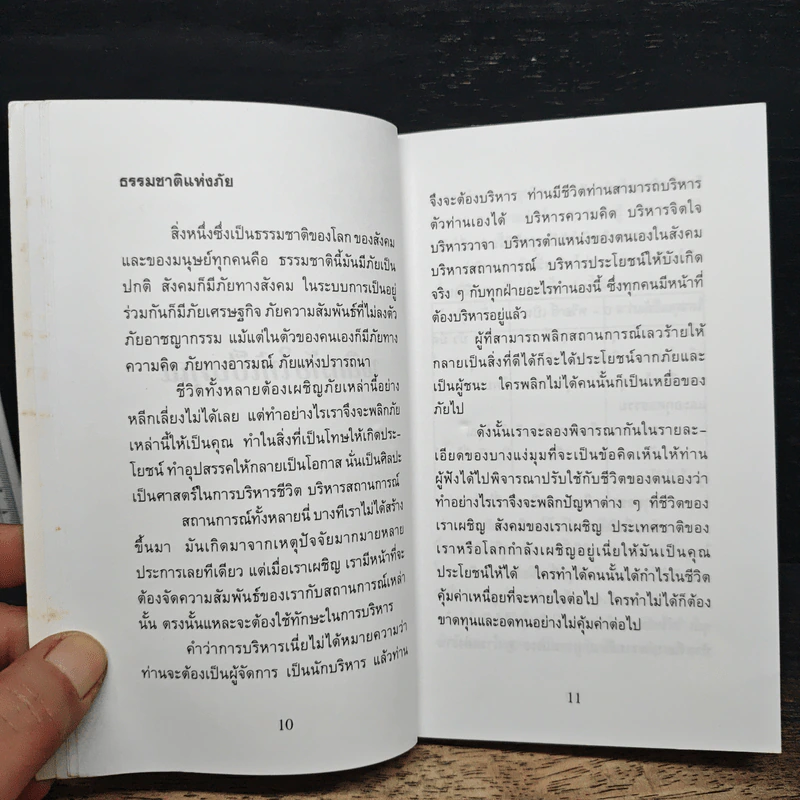 ธรรมชาติแห่งภัย
สิ่งหนึ่งซึ่งเป็นธรรมชาติของโลก ของสังคม
และของมนุษย์ทุกคนคือ ธรรมชาตินี้มันมีภัยเป็น
ปกติ สังคมก็มีภัยทางสังคม ในระบบการเป็นอยู่
ร่วมกันก็มีภัยเศรษฐกิจ ภัยความสัมพันธ์ที่ไม่ลงตัว
ภัยอาชญากรรม แม้แต่ในตัวของคนเองก็มีภัยทาง
ความคิด ภัยทางอารมณ์ ภัยแห่งปรารถนา
ชีวิตทั้งหลายต้องเผชิญภัยเหล่านี้อย่าง
หลีกเลี่ยงไม่ได้เลย แต่ทำอย่างไรเราจึงจะพลิกภัย
เหล่านี้ให้เป็นคุณ ทำในสิ่งที่เป็นโทษให้เกิดประ-
โยชน์ ทำอุปสรรคให้กลายเป็นโอกาส นั่นเป็นศิลปะ
เป็นศาสตร์ในการบริหารชีวิต บริหารสถานการณ์
สถานการณ์ทั้งหลายนี่ บางทีเราไม่ได้สร้าง
ขึ้นมา มันเกิดมาจากเหตุปัจจัยมากมายหลาย
ประการเลยทีเดียว แต่เมื่อเราเผชิญ เรามีหน้าที่จะ
ต้องจัดความสัมพันธ์ของเรากับสถานการณ์เหล่า
นั้น ตรงนั้นแหละจะต้องใช้ทักษะในการบริหาร
คำว่าการบริหารเนี่ยไม่ได้หมายความว่า
ท่านจะต้องเป็นผู้จัดการ เป็นนักบริหาร แล้วท่าน
10
จึงจะต้องบริหาร ท่านมีชีวิตท่านสามารถบริหาร
ตัวท่านเองได้ บริหารความคิด บริหารจิตใจ
บริหารวาจา บริหารตำแหน่งของตนเองในสังคม
บริหารสถานการณ์ บริหารประโยชน์ให้บังเกิด
จริง ๆ กับทุกฝ่ายอะไรทำนองนี้ ซึ่งทุกคนมีหน้าที่
ต้องบริหารอยู่แล้ว
ผู้ที่สามารถพลิกสถานการณ์เลวร้ายให้
กลายเป็นสิ่งที่ดีได้ก็จะได้ประโยชน์จากภัยและ
เป็นผู้ชนะ ใครพลิกไม่ได้คนนั้นก็เป็นเหยื่อของ
ภัยไป
ดังนั้นเราจะลองพิจารณากันในรายละ-
เอียดของบางแง่มุมที่จะเป็นข้อคิดเห็นให้ท่าน
ผู้ฟังได้ไปพิจารณาปรับใช้กับชีวิตของตนเองว่า
ทำอย่างไรเราจึงจะพลิกปัญหาต่าง ๆ ที่ชีวิตของ
เราเผชิญ สังคมของเราเผชิญ ประเทศชาติของ
เราหรือโลกกำลังเผชิญอยู่เนี่ยให้มันเป็นคุณ
ประโยชน์ให้ได้ ใครทำได้คนนั้นได้กำไรในชีวิต
คุ้มค่าเหนื่อยที่จะหายใจต่อไป ใครทำไม่ได้ก็ต้อง
ขาดทุนและอดทนอย่างไม่คุ้มค่าต่อไป
11